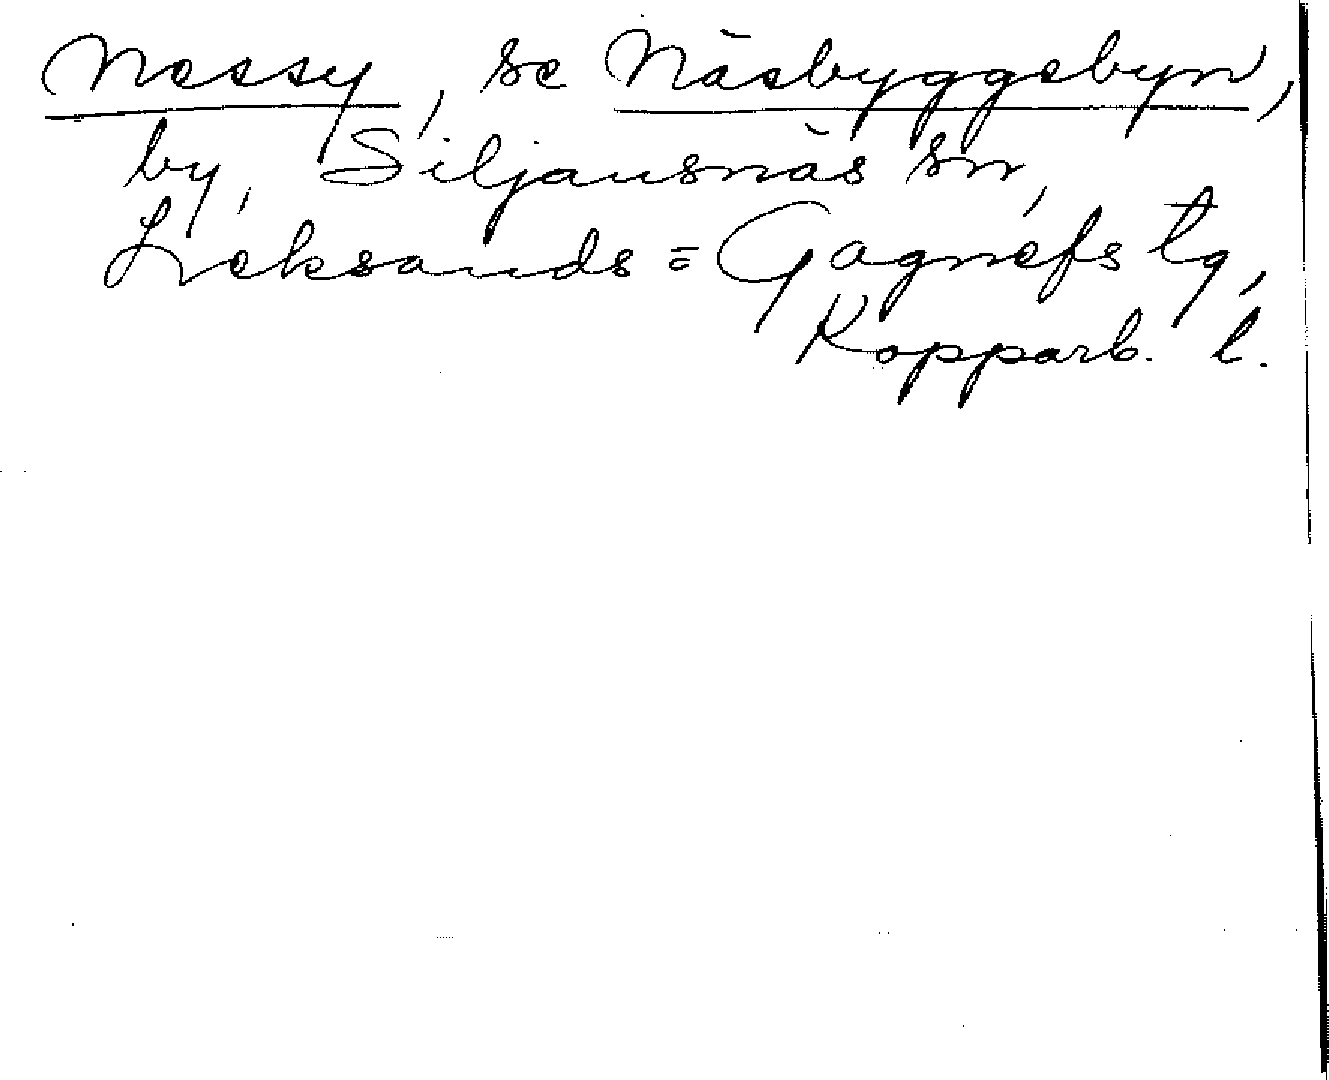 Nessy, se Näsbyggebyn,
by, Siljansnäs sn,
Leksands = Gagnefs tg,
Kopparb. l.